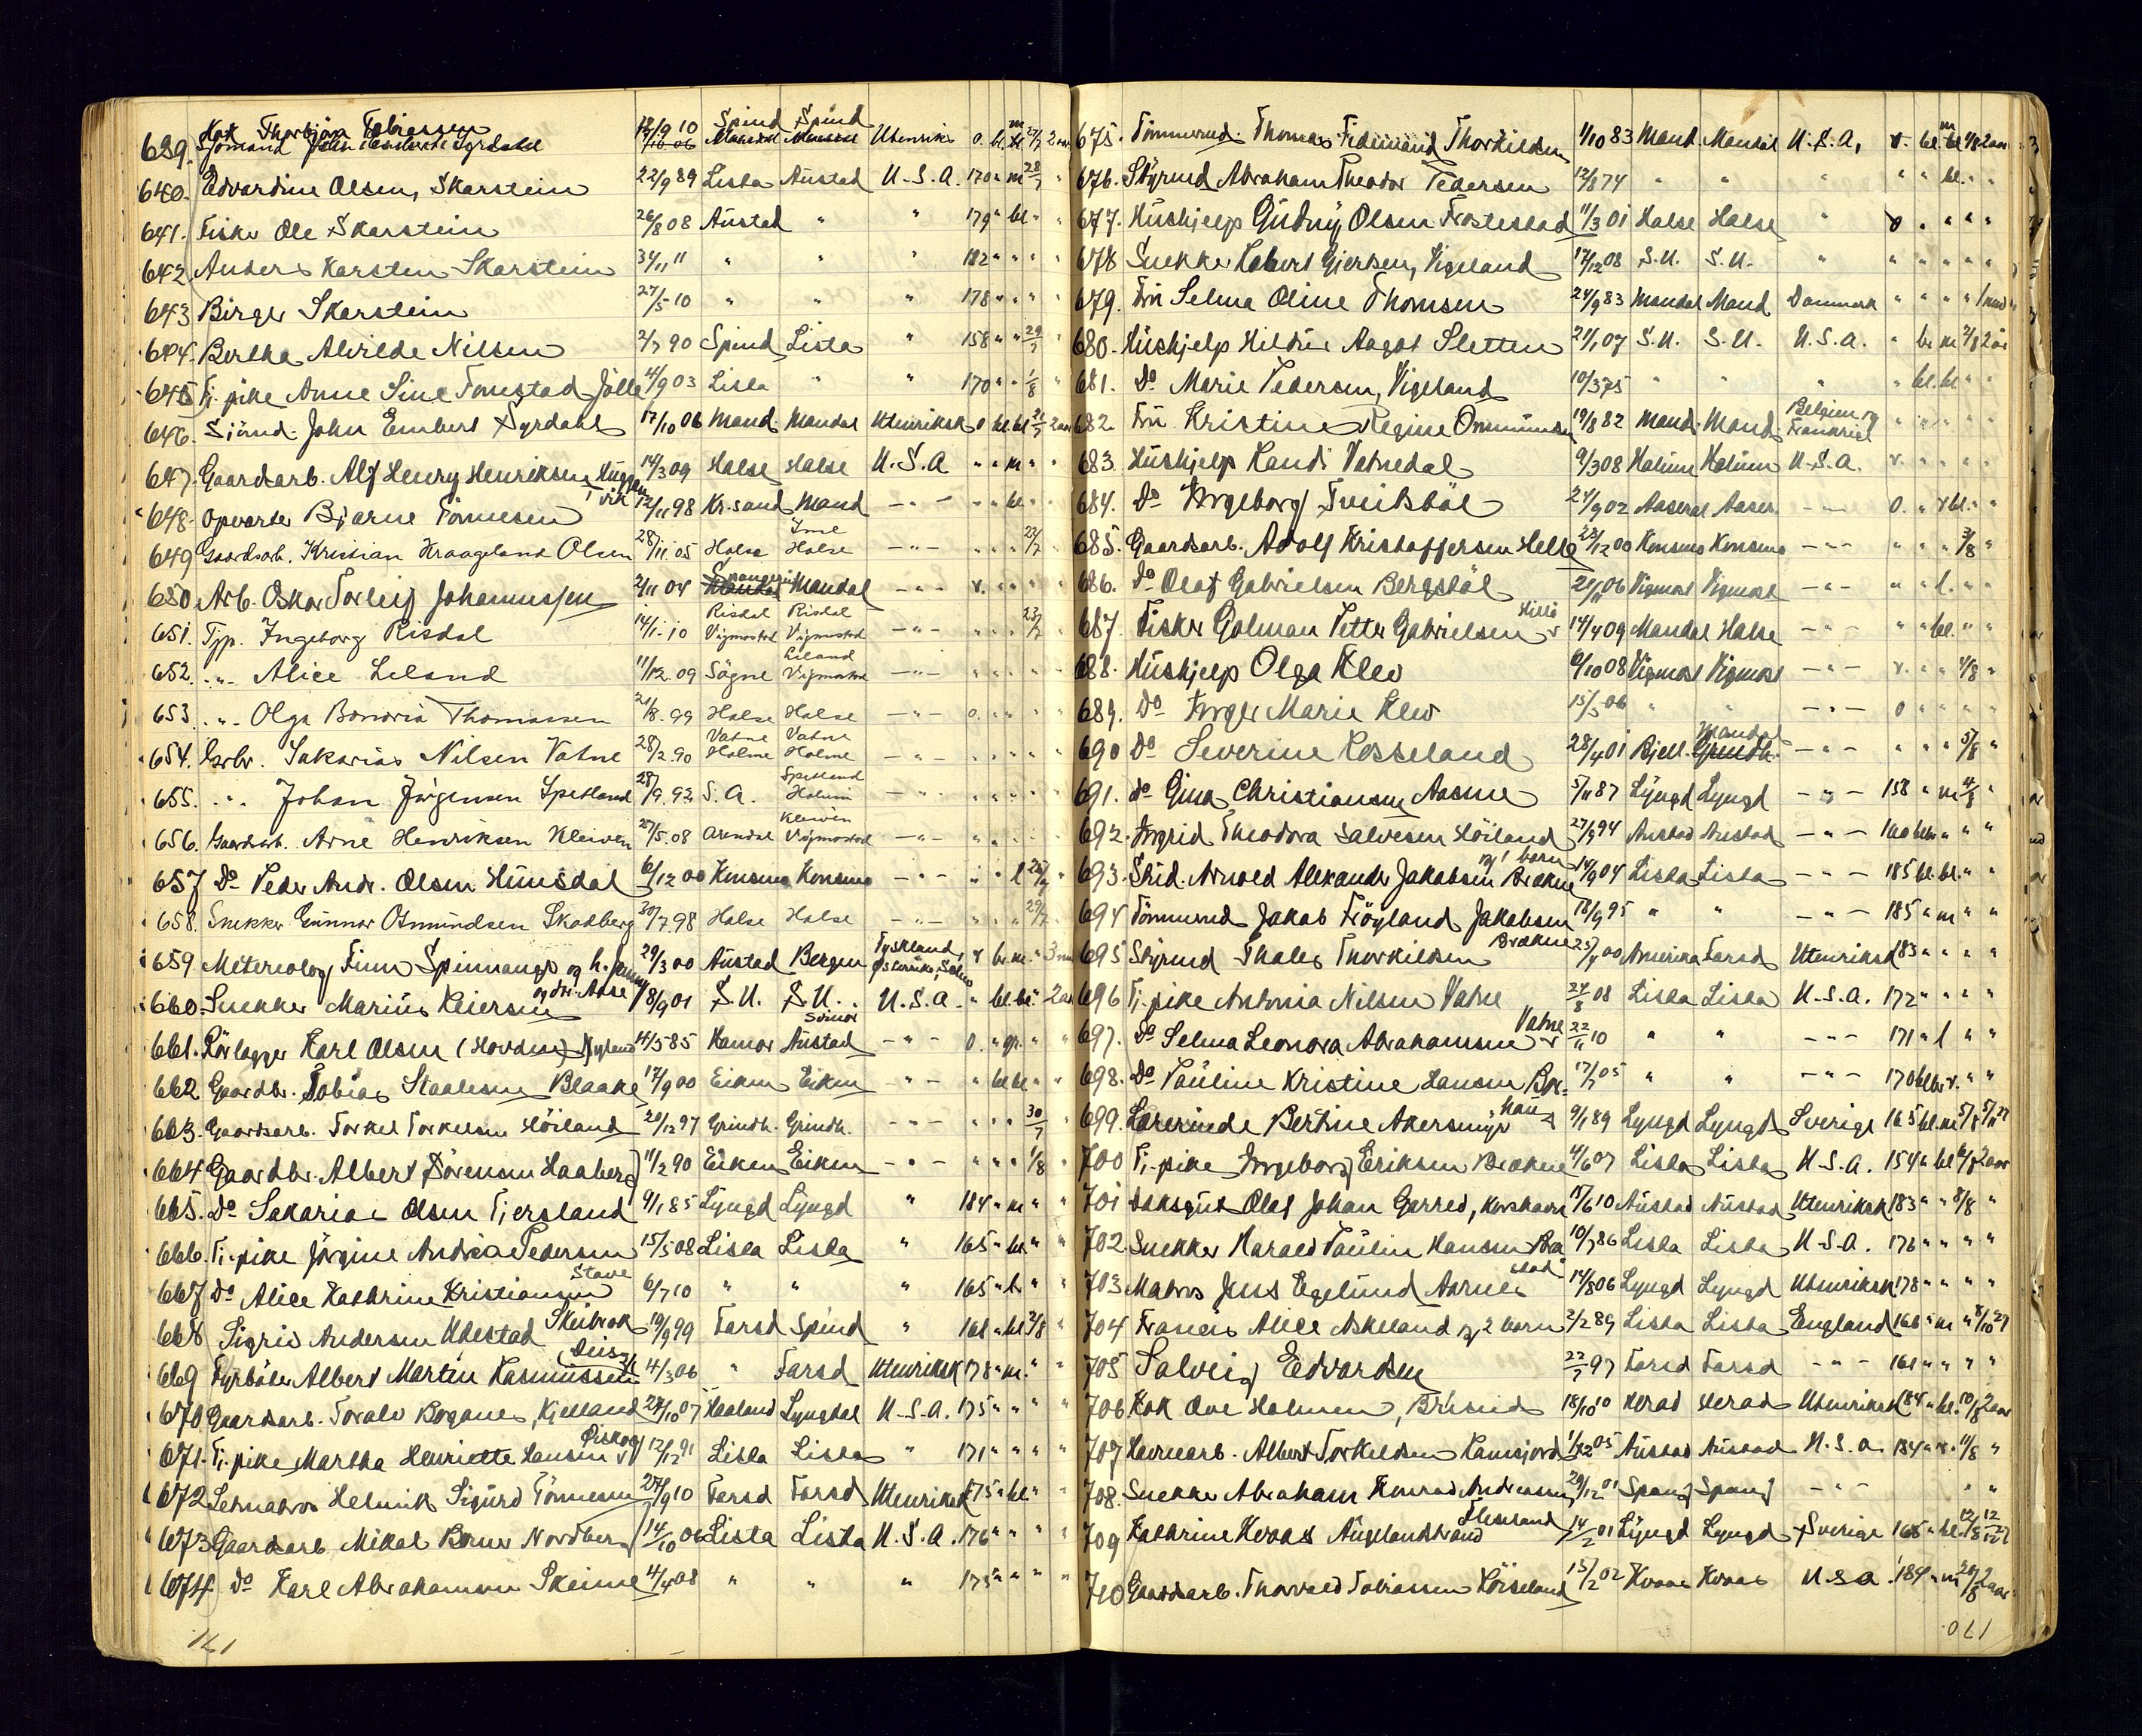 639. Kok Thorbjörn Tobiassen 18/9 10 Spind Spind Utenriks o. bl. 27/7 2 aar
640. Edvardine Olsen, Skarstein 22/9 89 Lista Austad U.S.A. 170 " m 28/7 "
641. Fisker Ole Skarstein 26/8 08 Austad " " 179 " bl. " "
642 Anders Karsten Skarstein " " " 182 " " " "
643 Birger Skarstein 27/5 10 " " " 178 " " " "
644. Bertha Alvilde Nilsen 2/7 90 Spind Lista " 158 " " 29/7 "
645 Tj. pike Anne Sine Tomstad, Jölle 4/9 03 Lista " " 170 " " 1/8 "
646. Sjömd. John Embert Syrdahl 17/10 06 Mand. Mandal Utenriksk o bl bl 21/7 2 aar
647. Gaardsarb. Alf Henry Henriksen 14/3 09 Halse Halse U.S.A " " m " "
648. Opvarter Bjarne Tönnesen 12/11 98 Kr.sand Mand — " — " " bl. " "
649 Gaardsarb. Kristian Kraageland Olsen 28/11 05 Halse Halse — " — " " " 22/7 "
650 Arb. Oskar Torleif Johannessen 2/11 04 Mandal — " — v. " " " "
651. Tjp. Ingeborg Risdal 14/1 10 Risdal Vigmostad Risdal Vigmostad — " — " " " 23/7 "
652. " Alice Leland 11/12 09 Sögne Leland Vigmostad — " — " " " " "
653. " Olga Bonoria Thomassen 21/8 99 Halse Halse — " — o. " " " "
654. Grbr. Sakarias Nilsen Vatne 28/2 90 Vatne Holme Vatne Holme — " — " " " " "
655. " Johan Jörgensen Spetland 28/9 92 S. A. Spetland Holum — " — " " " " "
656. Gaardsarb. Arne Henriksen Kleiven 27/5 08 Arendal Kleiven Vigmostad — " — " " " " "
657 Do Peder Andr. Olsen Hunsdal 6/12 00 Konsmo Konsmo — " — " " l 25/7 "
658. Snekker Gunnar Osmundsen Skodberg 30/7 98 Halse Halse — " — " " " 29/7 "
659 Metereolog Finn Spinnangr og h. 29/3 00 Austad Bergen Tyskland, v br m. "
660. Snekker Marius Reiersen 8/9 01 S. U. S. U. U.S.A. " bl bl " 2 aar
661. Rörlegger Karl Olsen (Hovden) 14/5 85 Hamar Austad — " — o. " gr. " "
662 Gaardbr. Tobias Staalesen Blaake 17/9 00 Eiken Eiken — " — " bl bl " "
663. Gaardsarb. Torkel Torkelsen Höiland 28/12 97 Grindh. Grindh. — " — " " " 30/7 "
664 Gaardbr. Albert Sörensen Haaberg 11/2 90 Eiken Eiken — " — " " " 1/8 "
665. Do Sakarias Olsen Tjersland 9/1 85 Lyngd Lyngd " 184 " m " "
666. Tj. pike Jörgine Andrea Pedersen 15/5 08 Lista Lista " 165 " bl " "
667 Do Alice Kathrine Kristiansen Stave 6/7 10 " " " 165 " " " "
668 Sigrid Andersen Udestad Skeibrok 19/9 99 Farsd Spind " 161 " bl 2/8 "
669 Fyrböter Albert Martin Rasmussen 14/3 06 " Farsd Utenriksk 178 " m. " "
670 Gaardsarb. Toralv Boganes, Kjelland 27/10 07 Haaland Lyngdal U.S.A. 175 " " " "
671. Tj. pike Martha Henriette Hansen 12/12 91 Lista Lista " 171 " " " "
672 Letmatros Helmik Sigurd Tönnesen 27/9 10 Farsd Farsd Utenriksk 175 " bl " "
673 Gaardsarb Mikal Berner Nordberg 14/10 06 Lista Lista U.S.A. 176 " " " "
674. do Karl Abrahamsen Skeime 4/4 08 " " " 175 " " " "
171
675. Tömmermd. Thomas Ferdinand Thorkildsen 1/10 83 Mand. Mandal U.S.A, v. bl. bl 1/8 2 aar
676. Styrmd Abraham Theodor Pedersen 12/8 74 " " " " " bl. " "
677. Hushjelp Gudny Olsen Frostestad 11/3 01 Halse Halse " o " " " "
678 Snekker Hobert Gjertsen, Vigeland 17/12 08 S.U. S.U. " " " " " "
679. Fru Selma Oline Thomsen 24/9 83 Mandal Mand Danmark " " " "
680. Hushjelp Hildur Aagot Sletten 21/1 07 S.U. S.U. U.S.A. " br m 2/8 2 år
681. Do Marie Pedersen, Vigeland 10/3 75 " " " " bl. bl. " "
682. Fru Kristine Regine Ommundsen 19/8 82 Mand. Mand Belgien og Frankrig " " " " "
683. Hushjelp Randi Vatnedal 9/3 08 Holum Holum U.S.A. v. " " " "
684. Do Ingeborg Tveitsböl 24/9 02 Aaseral Aaser. — " — o. " bl. " "
685. Gaardsarb. Adolf Kristoffersen Helle 23/12 00 Konsmo Konsmo — " — " " " 3/8 "
686. Do Olaf Gabrielsen Bergstöl 21/11 06 Vigmost Vigmost — " — " " l. " "
687. Fisker Golman Petter Gabrielsen Hillö 14/4 09 Mandal Halse — " — " " bl. " "
688. Hushjelp Olga Klev 6/10 08 Vigmost Vigmost — " — v. " " 4/8 "
689. Do Inger Marie Klev 15/5 06 " " — " — o " " " "
690 Do Severine Kosseland 28/4 01 Bjell. Mandal — " — " " " 5/8 "
691. Do Gina Christiansen Aasne 5/11 87 Lyngd Lyngd — " — 158 " m 4/8 "
692. Ingrid Theodora Salvesen Höiland 27/9 94 Austad Austad — " — 160 " " "
693. Skid. Arnold Alexander Jakobsen Brekne og 1 barn 14/9 04 Lista Lista — " — 185 bl. bl. " "
694 Tömmermd Jakob Fröyland Jakobsen Brekne 18/9 95 " " — " — 185 " m " "
695 Styrmd Thales Thorkildsen 25/4 00 Amerika Farsd Utenriksk 183 " " " "
696 Tj. pike Antonia Nilsen Vatne 24/8 08 Lista Lista U.S.A. 172 " " " "
697. Do Selma Leonora Abrahamsen Vatne 22/11 10 " " — " — 171 " l " "
698. Do Pauline Kristine Hansen 17/7 05 " " — " — 170 " "
699. Lærerinde Bertine Akersmyr 9/1 89 Lyngd Lyngd Sverige 165 bl. m 5/8
700 Tj. pike Ingeborg Eriksen Brekne 4/6 07 Lista Lista U.S.A. 154 " bl 6/8 2 aar
701 Daksgut Olaf Johan Garred, Korshavn 17/6 10 Austad Austad Utenriksk 183 " " 8/8 "
702 Snekker Harald Paulin Hansen 10/7 86 Lista Lista U.S.A. 176 " " " "
703 Matros Jens Egelund Aarnes 14/8 06 Lyngd Lyngd Utenriksk 178 " " " "
704 Frances Alice Askeland og 2 barn 3/2 89 Lista Lista England 166 " m " 8/10 27
705 Salveig Edvardsen 22/7 97 Farsd Farsd — " — 161 " " " "
706 Kok Ove Holmen, Briseid 18/10 10 Herad Herad Utenriksk 184 " bl. 10/8 2 aar
707 Havnearb. Albert Torkildsen Ramsfjord 05 Austad Austad U.S.A. 184 " " 11/8 "
708. Snekker Abraham Konrad Andreassen 29/12 01 Spang Spang — " — " "
709 Kathrine Kvaas Augelandstrand 14/2 01 Lyngd Lyngd Sverige 165 " bl. 12/8
710 Gaardsarb. Thorvald Tobiassen Röiseland 15/2 02 Kvaas Kvaas U.S.A. 189 " m 20/8 2 aar
170.